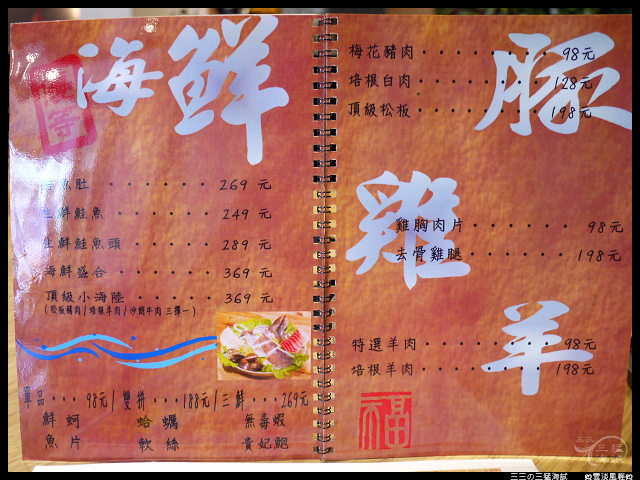 海鮮
魚肚‧‧‧‧‧‧‧269元
生鮮鮭魚‧‧‧‧‧‧249元
生鮮鮭魚頭‧‧‧‧‧289元
海鮮盛合‧‧‧‧‧‧369元
頂級小海陸‧‧‧‧‧369元
(松板豬肉/培根羊肉/沙朗牛肉 三擇一)
單品‧‧‧98元/雙拼‧‧‧188元/三鮮‧‧‧269元
鮮蚵 蛤蠣 無毒蝦
魚片 軟絲 貴妃鮑
豚
梅花豬肉‧‧‧‧‧‧‧‧98元
培根白肉‧‧‧‧‧‧‧‧128元
頂級松板‧‧‧‧‧‧‧‧198元
雞
雞胸肉片‧‧‧‧‧‧‧98元
去骨雞腿‧‧‧‧‧‧‧198元
羊
特選羊肉‧‧‧‧‧‧‧‧98元
培根羊肉‧‧‧‧‧‧‧‧198元
福
三三の三猛海賊
雲淡風輕